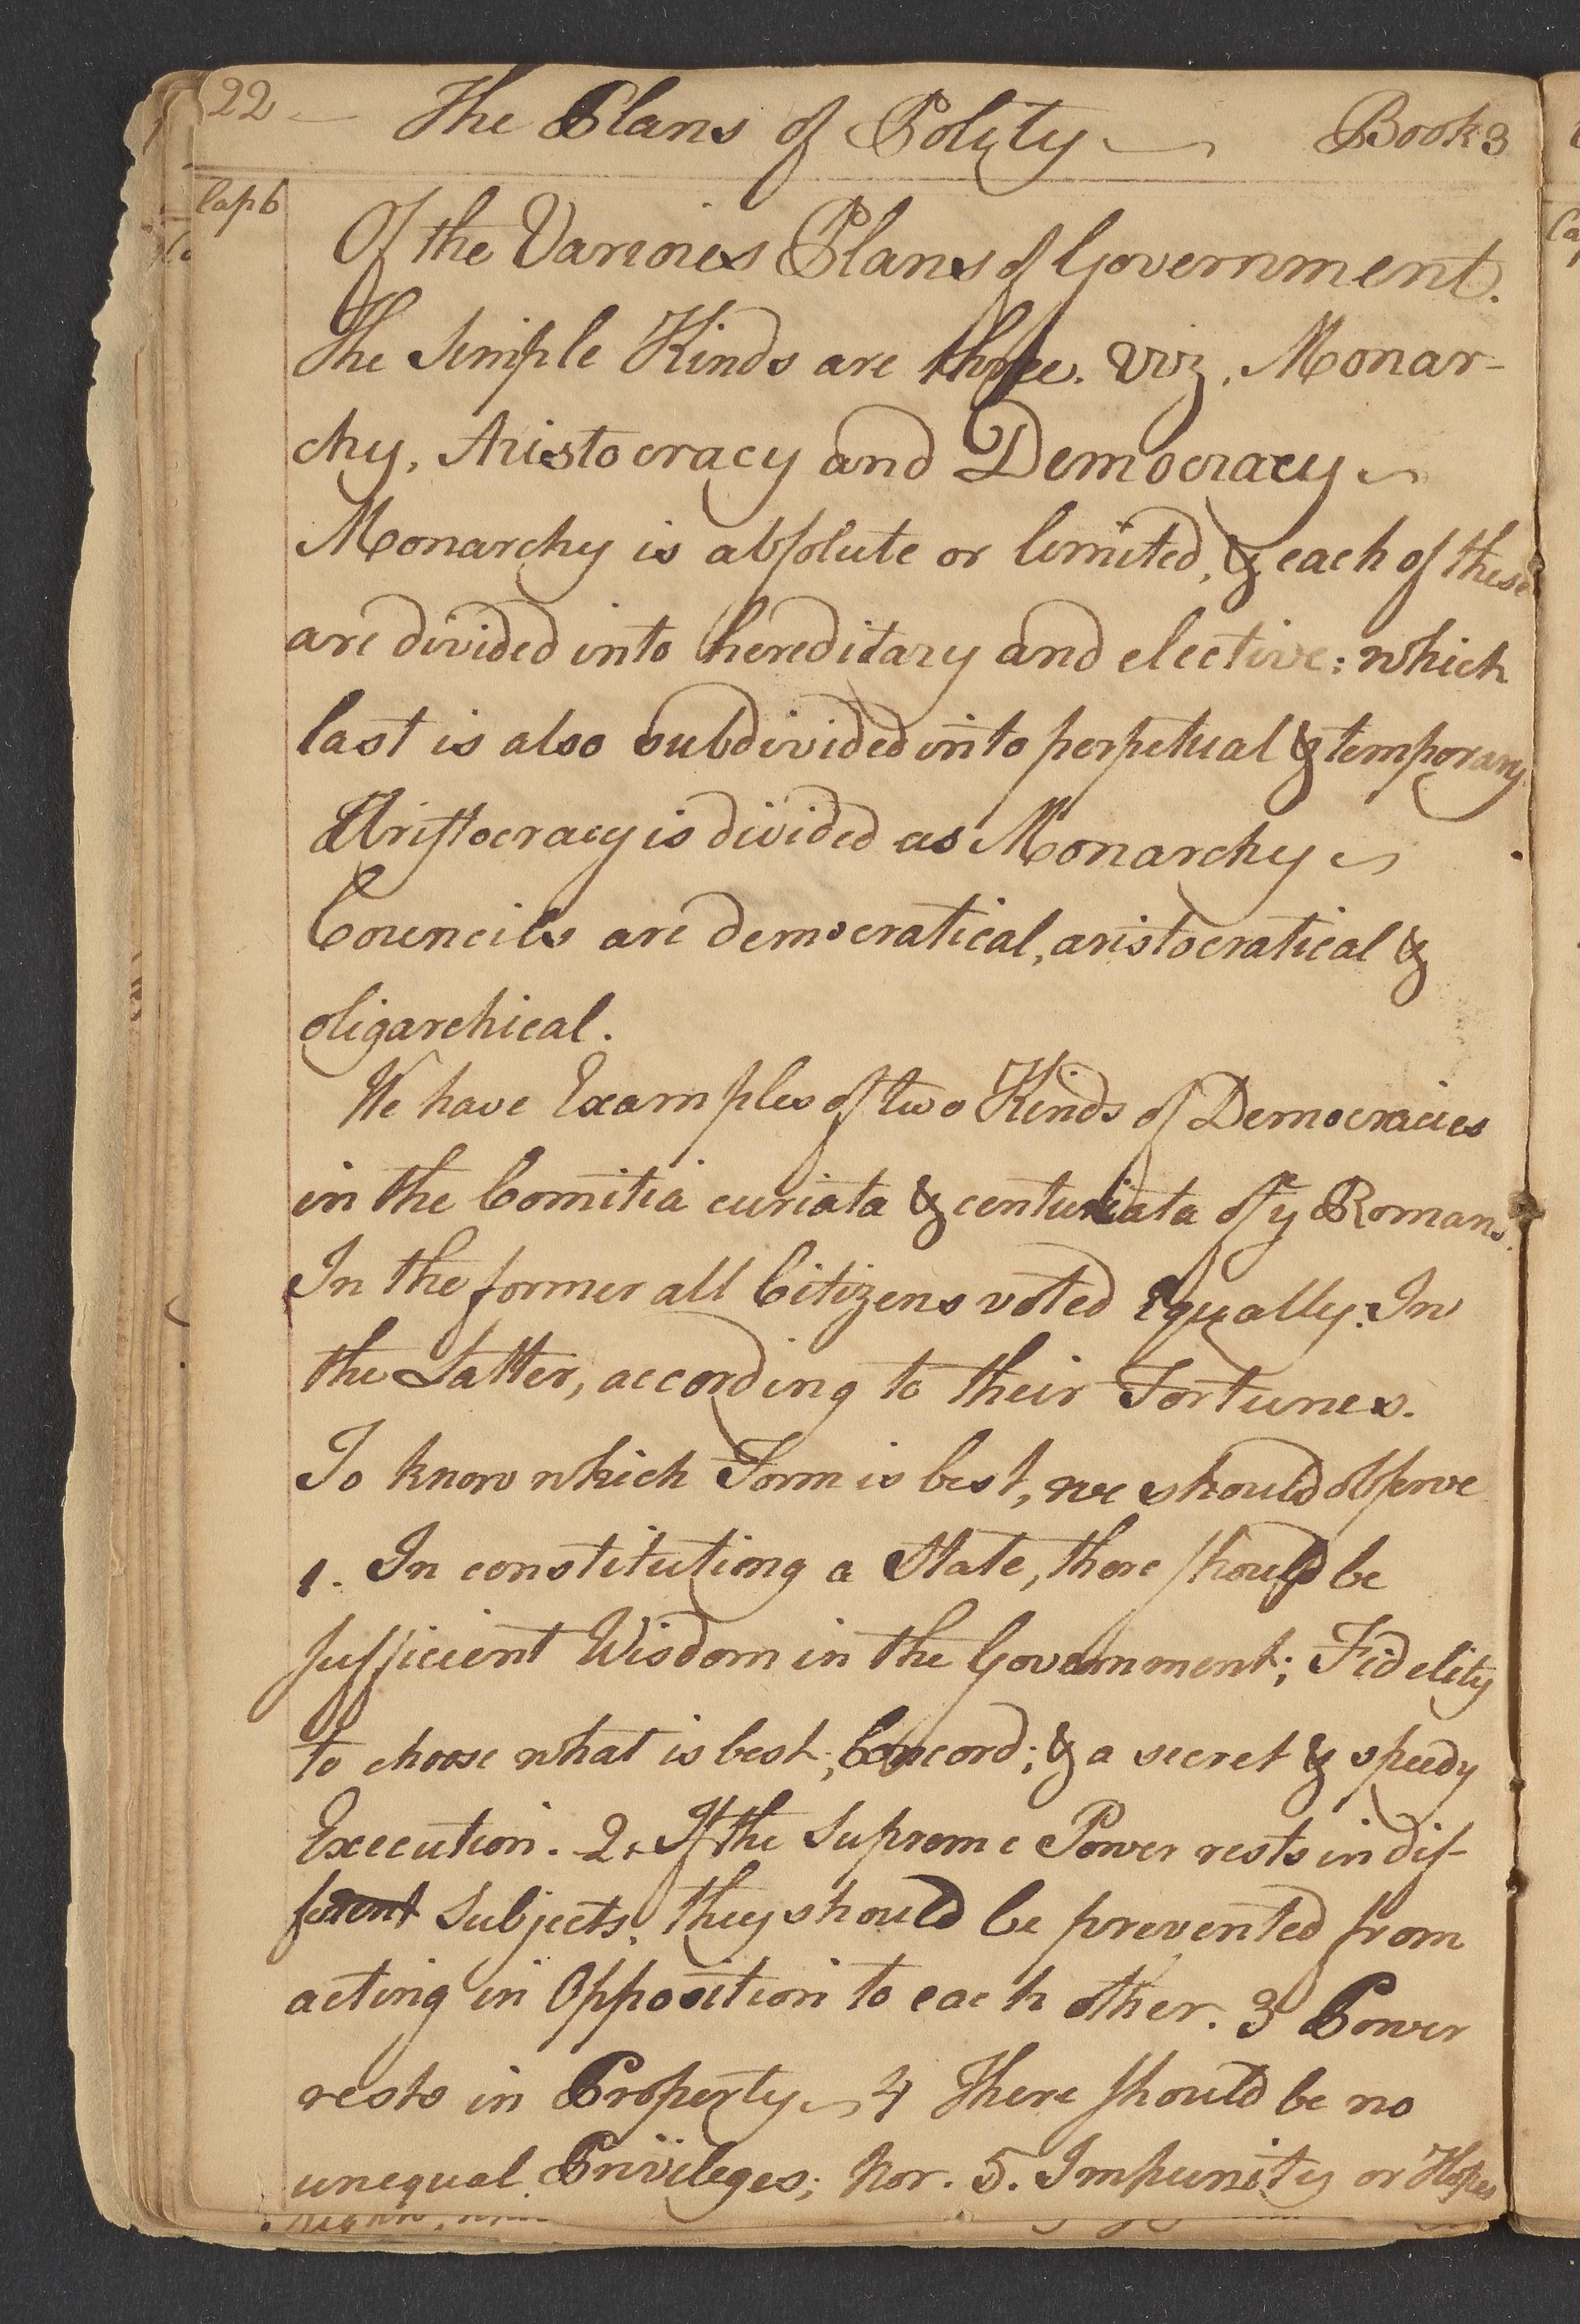 22 — The Plans of Polity — Book 3
Cap 6
Of the Various Plans of Government.
The Simple Kinds are three. viz, Monar-
chy, Aristocracy and Democracy
Monarchy is absolute or limited, & each of these
are divided into hereditary and elective: which
last is also subdivided into perpetual & temporary
Aristocracy is divided as Monarchy
Councils are democratical, aristocratical &
oligarchical.
We have Examples of two Kinds of Democracies
in the Comitia curiata & centuriata of y Romans.
In the former all Citizens voted Equally. In
the Latter, according to their Fortunes.
To know which Form is best, we should observe
1. In constituting a State, there should be
sufficient Wisdom in the Government; Fidelity
to choose what is best; Concord; & a secret & speedy
Execution. 2. If the Supreme Power rests in dif-
ferent Subjects, they should be prevented from
acting in Opposition to each other. 3 Power
rests in Property 4 There should be no
unequal Privileges; Nor. 5. Impunity or Hopes